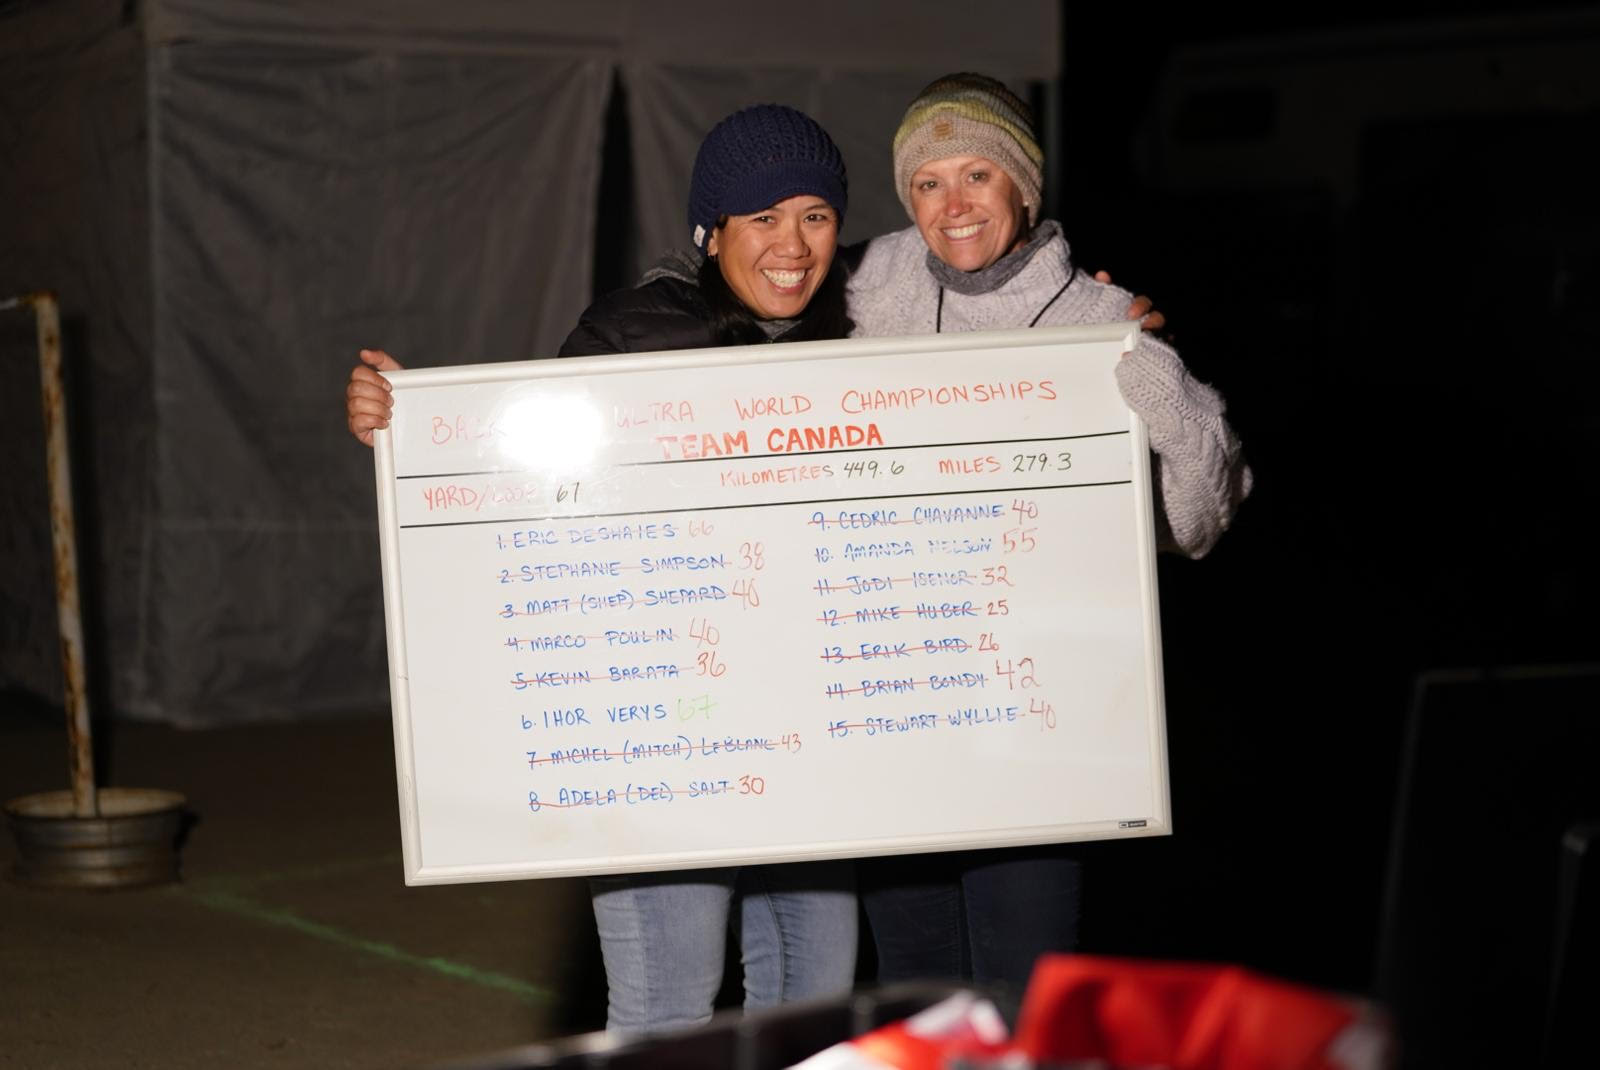 ULTRA WORLD CHAMPIONSHIPS
TEAM CANADA
YARD/LOOP 67 KILOMETRES 449.6 MILES 279.3
1. ERIC DESHAIES 66
2. STEPHANIE SIMPSON 38
3. MATT (SHEP) SHEPARD 40
4. MARCO POULIN 40
5. KEVIN BARATA 36
6. IHOR VERYS 67
7. MICHEL (MITCH) LEBLANC 43
8. ADELA (DEL) SALT 30
9. CEDRIC CHAVANNE 40
10. AMANDA NELSON 55
11. JODI ISENOR 32
12. MIKE HUBER 25
13. ERIK BIRD 26
14. BRIAN BONDY 42
15. STEWART WYLLIE 40